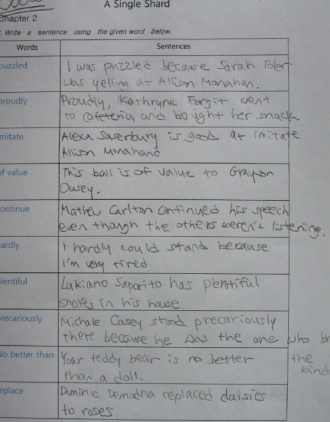 A Single Shard
Chapter 2
Write a sentence using the given word below.
Words Sentences
puzzled I was puzzled because Sarah
was yelling at Alison Manahan.
proudly Proudly, Kathryne Forgit went
to cafeteria and bought her snack.
imitate Alexa is good at imitate
Alison Manahand
of value This ball is of value to Grayson
Ousey.
continue Mathew Carlton continued his speech
even though the others weren't listening.
hardly I hardly could stand because
I'm very tired
plentiful Lukiano Saporito has plentiful
in his house
precariously Michale Casey stood precariously
there because he was the one who
No better than Your teddy bear is no better the
than a doll.
replace Dominic replaced daisies
to roses.